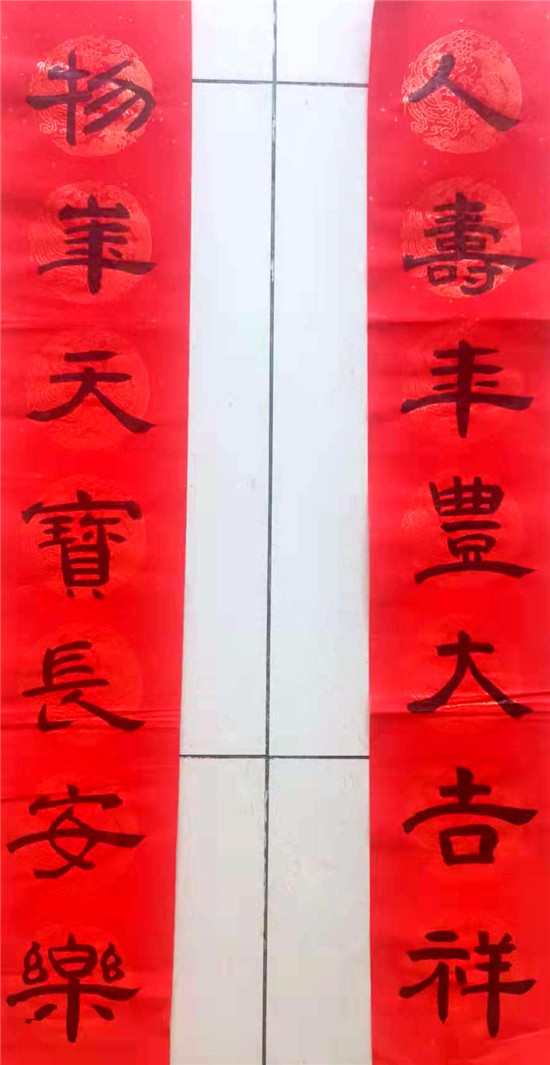 人壽年豐大吉祥
物華天寶長安樂